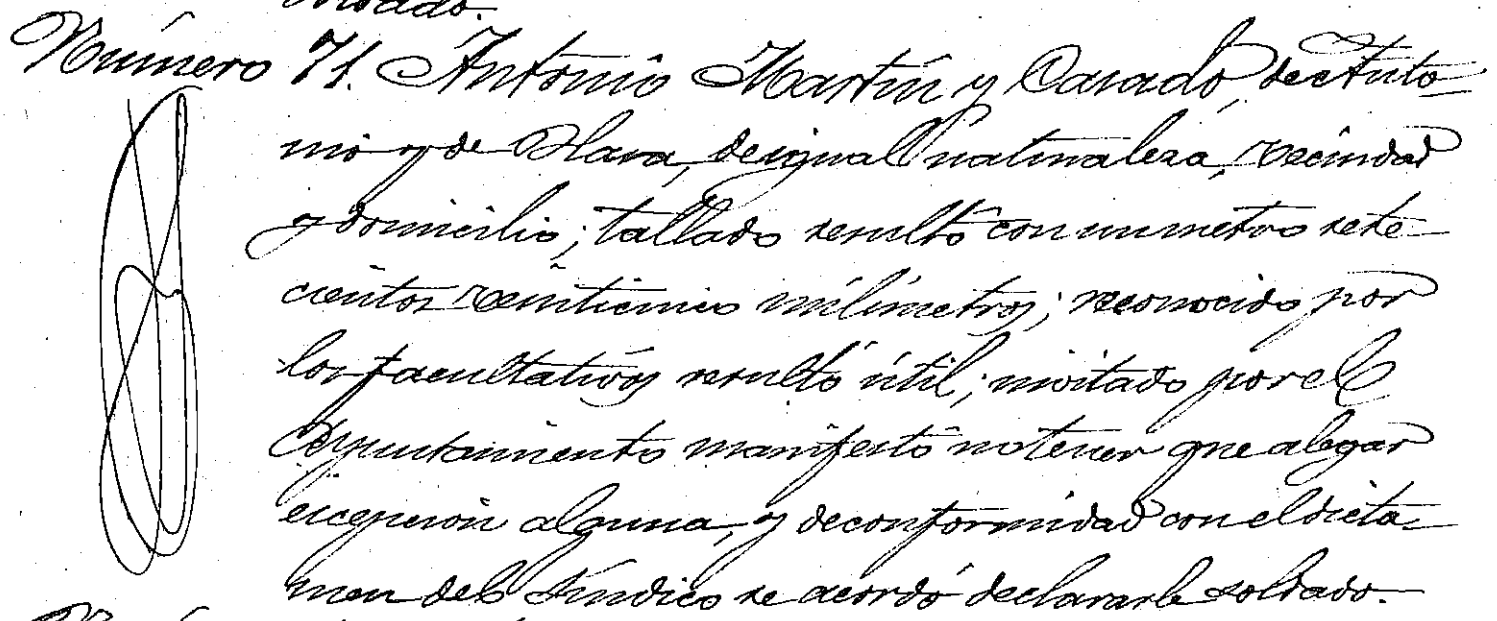 Número 71. Antonio Martín y Casado, de Anto-
nio y de Clara, de igual naturaleza, vecindad
y domicilio; tallado resultó con un metro sete-
cientos veinticinco milímetros; reconocido por
los facultativos resultó útil; invitado por el
Ayuntamiento manifestó no tener que alegar
excepción alguna, y de conformidad con el dicta-
men del Síndico se acordó declararle soldado.